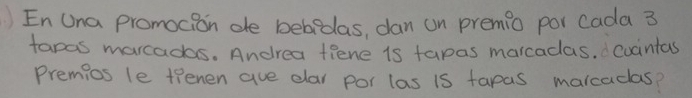 ) En Una promoción de bebidas, dan un premio por cada 3
tapas marcadas. Andrea tiene 15 tapas marcadas. ¿cuántas
Premios le tienen que dar por las 15 tapas marcadas?